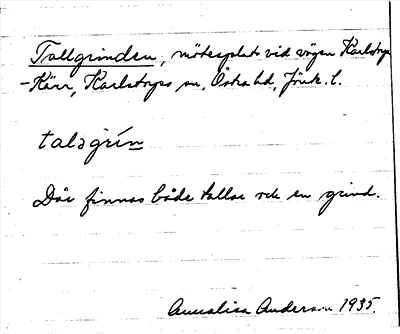 Tallgrinden, mötesplats vid vägen Karlstorp
-Kärr, Karlstorps sn, Östra hd, Jönk. l.
talgrin
Där finnas både tallar och en grind.
Annalisa Anderson 1935.